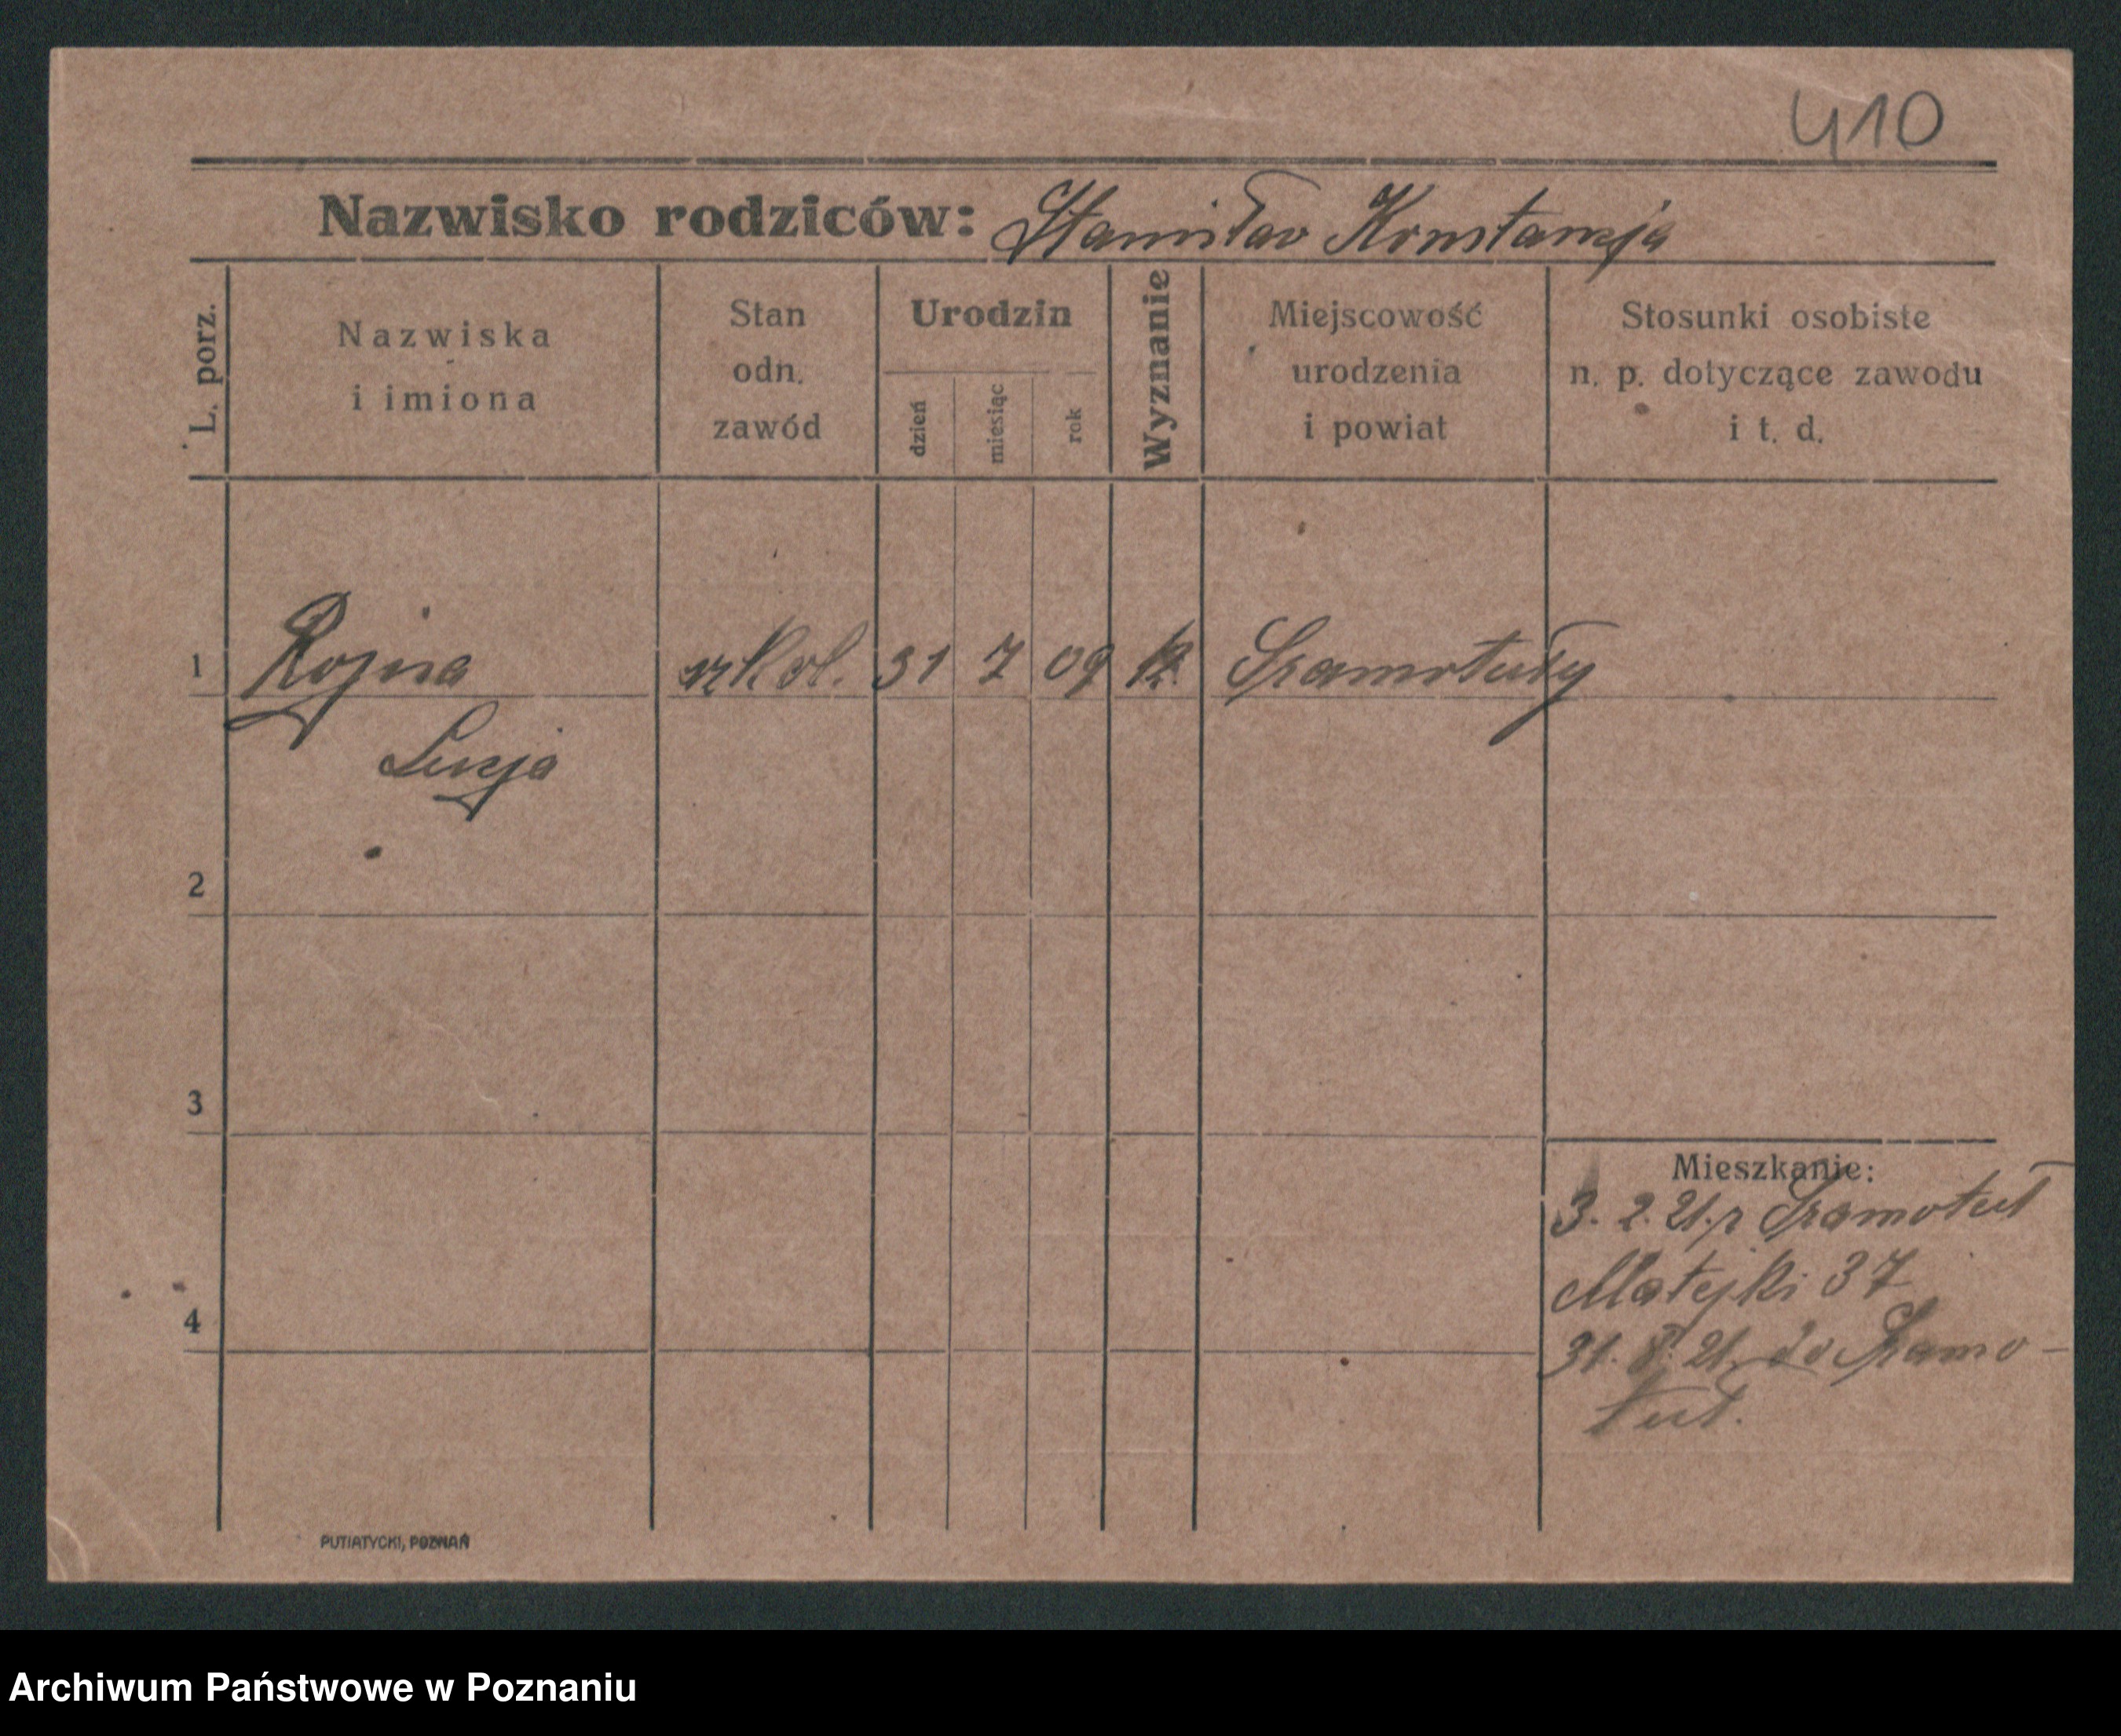 410
Nazwisko rodziców: Stanisław Konstancja
L. porz.
Nazwiska
i imiona
Stan
odn.
zawód
Urodzin
dzień
miesiąc
rok
Wyznanie
Miejscowość
urodzenia
i powiat
Stosunki osobiste
n. p. dotyczące zawodu
i t. d.
1 szkol. 31 7 09 k. Szamotuły
Lucja
2
3
4
Mieszkanie:
3. 2. 21. z Szamotuł
Matejki 37
31. 8. 21. do Szamo-
tuł.
PUTIATYCKI, POZNAŃ
Archiwum Państwowe w Poznaniu